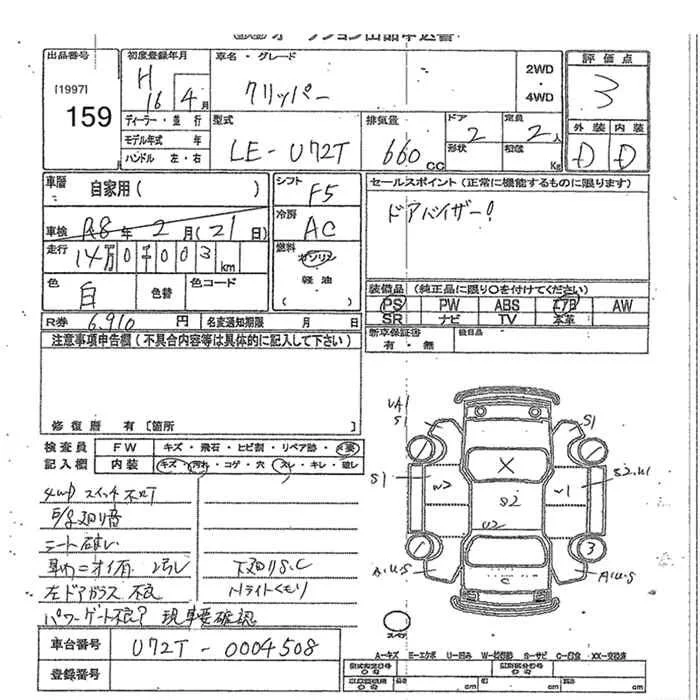 出品番号
[1997]
159
初度登録年月
H
16 4月
車名・グレード
クリッパー
2WD
・
4WD
評価点
3
外装 内装
D D
ディーラー・並行
モデル年式 年
ハンドル 左・右
型式
LE-U72T
排気量
660 CC
ドア 2
形状
定員 2人
積載 Kg
車歴 自家用( )
車検 R8年 2月(21日)
走行 14万0千003km
色 白
色替
色コード
シフト F5
冷房 AC
燃料
ガソリン
軽油
( )
セールスポイント(正常に機能するものに限ります)
ドアバイザー!
装備品(純正品に限り○を付けてください)
PS PW ABS エアB AW
SR ナビ TV 本革
新車保証書
有・無
後日品
R券 6,910円 名変通知期限 月 日
注意事項申告欄(不具合内容等は具体的に記入して下さい)
修復歴 有 [箇所 ]
検査員
記入欄
FW キズ・飛石・ヒビ割・リペア跡・
内装 キズ・汚れ・コゲ・穴・スレ・キレ・破し
4WD スイッチ
シート破レ
左ドアガラス 不良
パワーゲート不良? 現車要確認
下廻りS.C
Hライトくもり
車台番号 U72T-0004508
登録番号
S1
S1
S1
S2.U1
W2
S2
U2
X
1
1
1
3
C
A.U.S
A.U.S
スペア
A-キズ E-エクボ U-凹み W-補修跡 S-サビ C-腐食 XX-交換済
cm cm cm